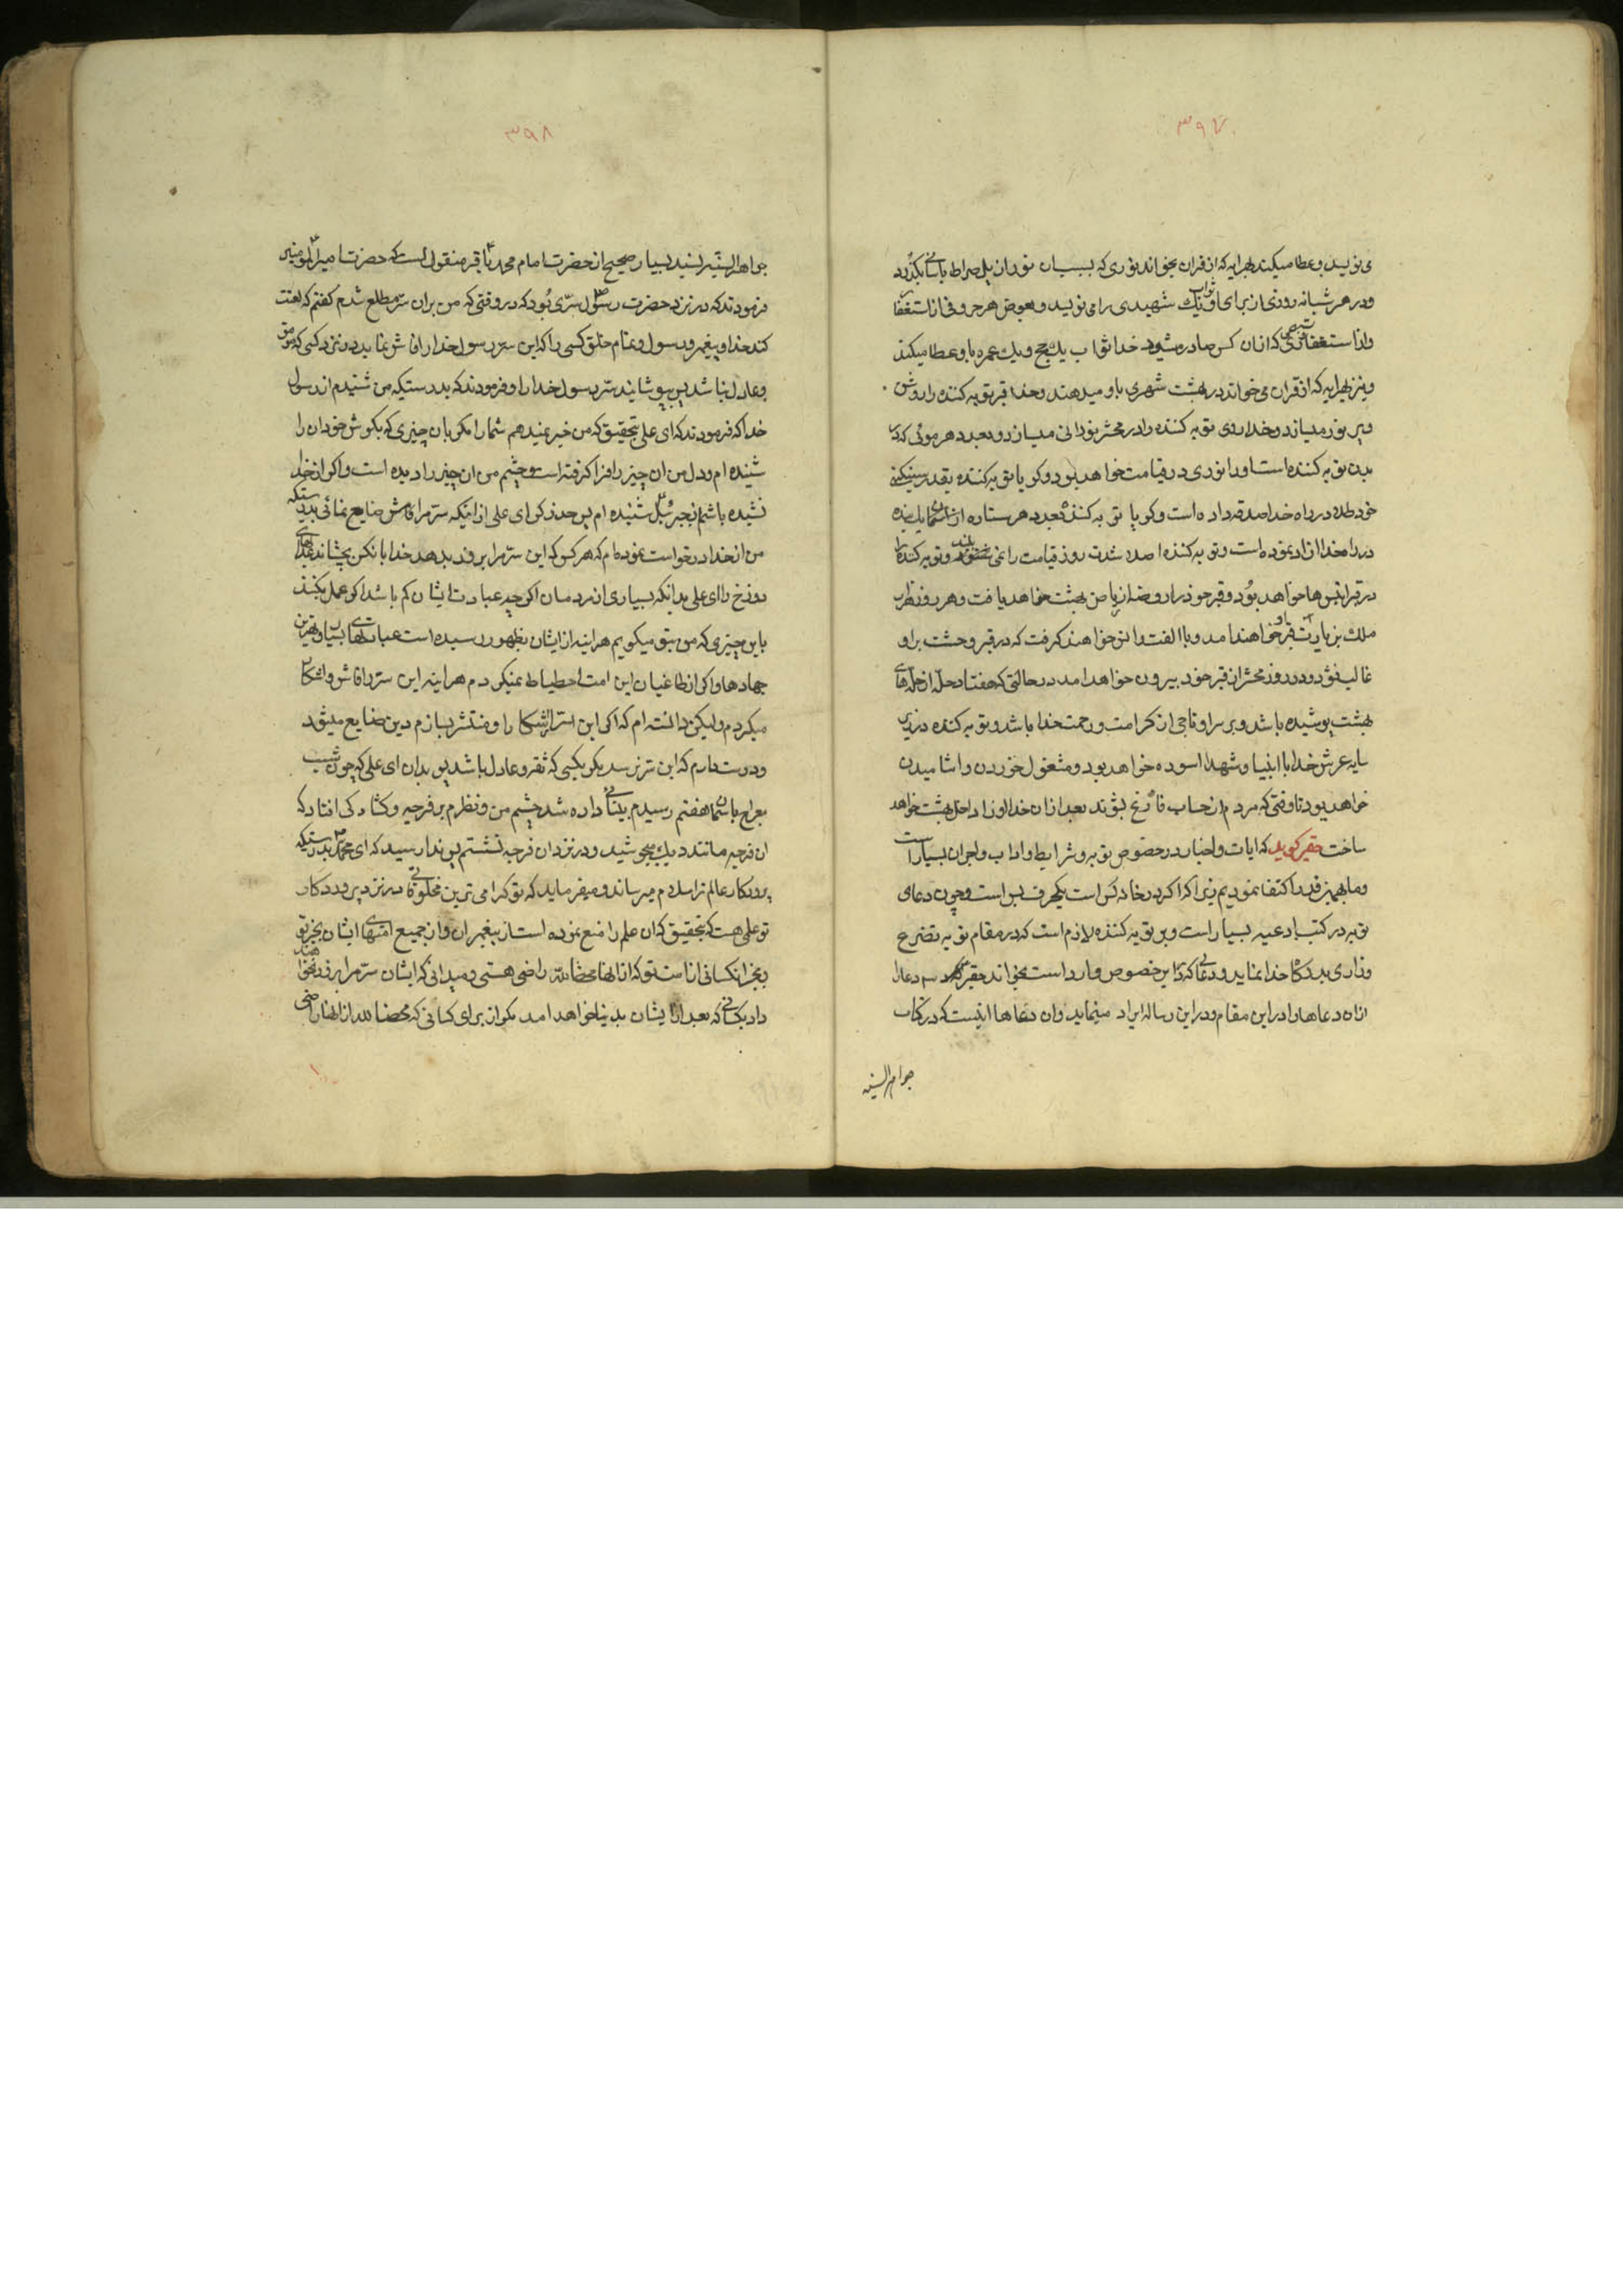 ۳۹۷
می نویسد و عطا میکند بهر ایه که از قران بخواند نوری که بسبب ان نور از پل صراط باسانی بگذرد
و در هر شبانه روزی از برای او ثواب یک شهیدی را می نویسد و بعوض هر حرفی از استغفار
و از استغفاری که از ان کس صادر میشود خدا ثواب یک حج و یک عمره باو عطا میکند
و نیز بهر ایه که از قران می خواند در بهشت شهری باو میدهند و خدا قبر توبه کننده را روشن
و پر نور میسازد و خدا روی توبه کننده را در محشر نورانی میسازد و بعدد هر موئی که در
بدن توبه کننده است او را نوری در قیامت خواهد بود و گویا توبه کننده بقدر سنگینی
خود طلا در راه خدا صدقه داده است و گویا توبه کننده بعدد هر ستاره از اسمان یک بنده
در راه خدا ازاد نموده است و توبه کننده صدا شدت روز قیامت را نمی شنود و توبه کننده را
در قبر انیس ها خواهد بود و قبر خود را روضه از ریاض بهشت خواهد یافت و هر روز هزار
ملک بزیارت قبر او خواهند امد و با او الفت و انس خواهند گرفت که در قبر وحشت بر او
غالب نشود و در روز محشر از قبر خود بیرون خواهد امد در حالتی که هفتاد حله از حله های
بهشت پوشیده باشد و بر سر او تاجی از کرامت و رحمت خدا باشد و توبه کننده در زیر
سایه عرش خدا با انبیا و شهدا اسوده خواهد بود و مشغول خوردن و اشامیدن
خواهد بود تا وقتی که مردم از حساب فارغ بشوند بعد از ان خدا او را داخل بهشت خواهد
ساخت حقیر گوید که ایات و اخبار در خصوص توبه و شرایط و اداب و اجر ان بسیار است
و ما بهمین قدر اکتفا نمودیم زیرا که اگر در خانه کس است یکحرف بس است و چون دعای
توبه در کتب ادعیه بسیار است و بر توبه کننده لازم است که در مقام توبه تضرع
و زاری بدرگاه خدا نماید و دعائی که در این خصوص وارد است بخواند حقیر سه دعا را
از ان دعاها را در این مقام و در این رساله ایراد مینماید و ان دعاها اینست که در کتاب
جواهر السنیه
۳۹۸
جواهر السنیه بسند بسیار صحیح از حضرت امام محمد باقر ع منقول است که حضرت امیر المومنین
فرمودند که در نزد حضرت رسول ص سری بود که در وقتی که من بر ان سر مطلع شدم گفتم که لعنت
کند خدا و پیغمبر و رسول و تمام خلق کسی را که این سر رسول خدا را فاش نماید در نزد کسی که مؤمن
و عادل نباشد پس بپوشانید سر رسول خدا را و فرمودند که بدرستیکه من شنیدم از رسول
خدا که فرمودند که ای علی بتحقیق که من خبر نمیدهم شما را مگر بان چیزی که بگوش خود ان را
شنیده ام و دل من ان چیز را فرا گرفته است و چشم من ان چیز را دیده است و اگر از خدا
نشنیده باشم از جبرئیل شنیده ام پس حذر کن ای علی از اینکه سر مرا فاش و ضایع نمائی بدرستیکه
من از خدا درخواست نموده ام که هر کس که این سر مرا بروز بدهد خدا بانکس بچشاند عذابهای
دوزخ را ای علی بدانکه بسیاری از مردمان اگر چه عبادت ایشان کم باشد اگر عمل بکنند
باین چیزی که من بتو میگویم هر اینه از ایشان بظهور رسیده است عبادتهای بسیار و بهترین
جهادها و اگر از طاغیان این امت احتیاط نمیکردم هر اینه این سر را فاش و اشکارا
میکردم ولیکن دانسته ام که اگر این سر را اشکارا و منتشر بسازم دین ضایع میشود
و دوست دارم که این سر نرسد مگر بکسی که ثقه و عادل باشد پس بدان ای علی که چون شب
معراج باسمان هفتم رسیدم بینائی داده شد چشم من و نظرم بر فرجه و گشادگی افتاد که
ان فرجه مانند دیک میجوشید و در نزد ان فرجه نشستم پس ندا رسید که ای محمد ص بدرستیکه
پروردگار عالم ترا سلام میرساند و میفرماید که تو گرامی ترین مخلوقاتی در نزد پروردگار
تو علمی هست که بتحقیق که ان علم را منع نموده است از پیغمبران و از جمیع امتهای ایشان بجز تو
و بجز انکسانی از امت تو که از انها محضا لله راضی هستی و میدانی که ایشان سر مرا بروز نخواهند
داد بکسانی که بعد از ایشان بدنیا خواهد امد مگر از برای کسانی که محضا لله از انها راضی